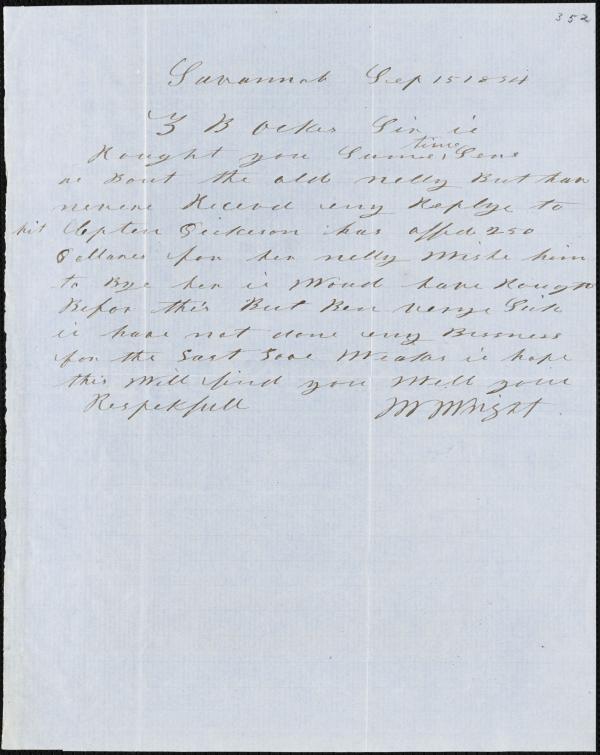 352
Savannah Sep 15 1854
Z B Oakes Sir is
Rought you Sume time Sens
a Bout the old nelly But hav
nevere Receved eny Replye to
hit Capten Dickeson has offd 250
Dollares for her nelly Wishe him
to Bye her is Woud have Rought
Befor this But Ben verye Sick
is have not done eny Bisness
for the Last Weakes is hope
this Will find you Well your
Respekfull W Wright